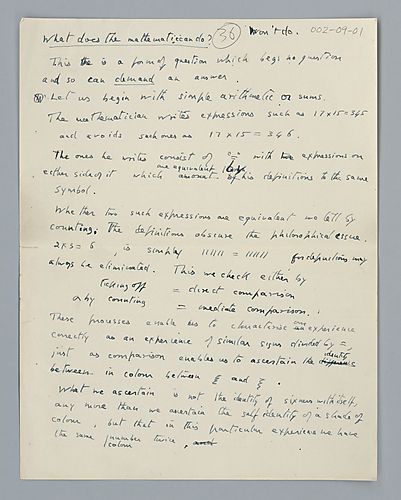 What does the mathematician do? 36 Won't do. 002-09-01
This is a form of question which begs no question
and so can demand an answer.
Let us begin with simple arithmetic or sums.
The mathematician writes expressions such as 17 x 15 = 345
and avoids such ones as 17 x 15 = 346.
The ones he writes consist of = with two expressions on
either side of it which are equivalent by his definitions to the same
symbol.
Whether two such expressions are equivalent we tell by
counting. The definitions obscure the philosophical issue.
2 x 3 = 6, is simply 111111 = 111111 for definitions may
always be eliminated. This we check either by
ticking off = direct comparison
or by counting = mediate comparison.
These processes enable us to characterise one experience
correctly as an experience of similar signs divided by =,
just as comparison enables us to ascertain the identity
between in colour between ξ and ξ.
What we ascertain is not the identity of sixness with itself,
any more than we ascertain the self identity of a shade of
colour, but that in this particular experience we have
the same number twice,
colour